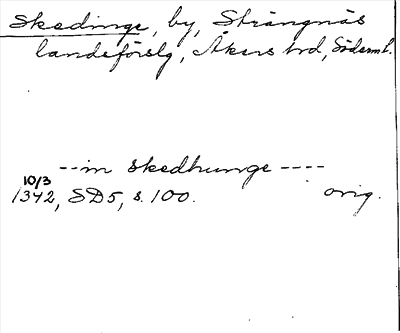 Skedinge, by, Strängnäs
landsförslg, Åkers hrd, Söderml.
--in skedhunge ----
10/3
1342, SD5, s. 100. orig.